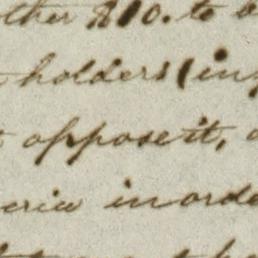 ther $10. to
holders (in
oppose it,
in orde